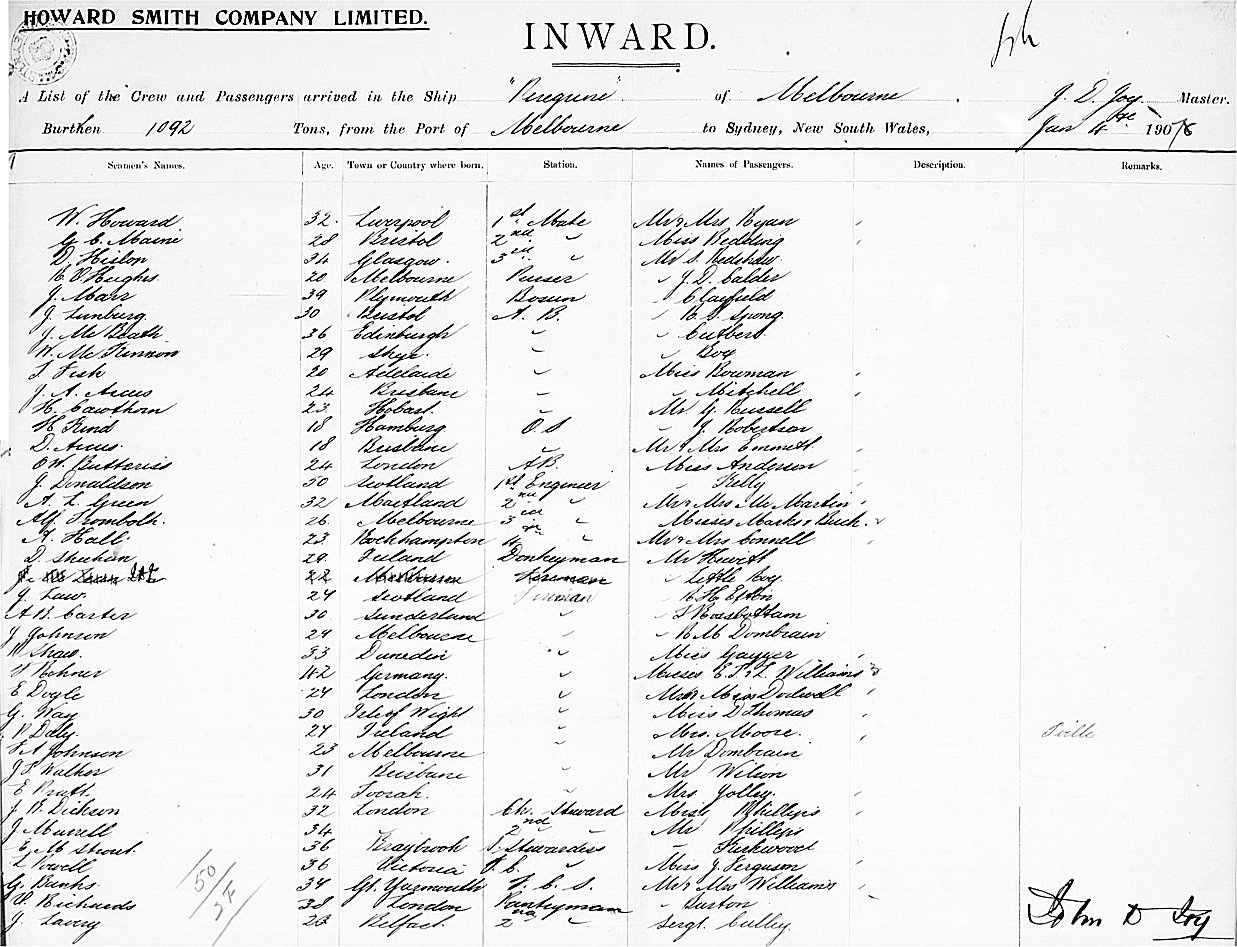 HOWARD SMITH COMPANY LIMITED.
INWARD.
A List of the Crew and Passengers arrived in the Ship "Peregrine" of Melbourne . J. D. Joy Master.
Burthen 1092 Tons, from the Port of Melbourne to Sydney, New South Wales, Jan 4th 190
Seamen's Names. Age. Town or Country where born. Station. Names of Passengers. Description. Remarks.
W. Howard 32. Liverpool 1st Mate Mr & Mrs Ryan
G. C. Maine 28 Bristol 2nd " Miss Redding
D. Hislon 34 Glasgow. 3rd " Mr S. Redshaw
R. O. Hughes. 20 Melbourne Purser " J. D. Calder
J. Marr 39 Plymouth Bosun " Clayfield
J. Lunburg. 30 Bristol A. B. " Spong
J. Mc Beath 36 Edinburgh " " Cutbert
W. Mc Kinnon 29 Skye. " " Boy
Fish 20 Adelaide " Miss Bowman
J. A. Arcus 24 Brisbane " " Mitchell
H. Cawthorn 23 Hobart. " Mr G. Russell
H Kind 18 Hamburg O. S " J. Robertson
D. Arcus. 18 Brisbane " Mr & Mrs Emmett
Butteriss 24 London A.B. Miss Anderson
J. Donaldson 50 Scotland 1st Engineer " Kelly
A. L. Green 32 Maitland 2nd " Mr & Mrs Mc Martin
Alf. Trombolh. 26 Melbourne 3rd " Misses Marks & Buck. 2
Hall 23 Rockhampton 4th " Mr & Mrs Connell
D. Sheehan 29 Ireland Donkeyman Mr Hewitt
22 Melbourne Fireman " Little Boy
J. Law 24 Scotland Fireman " R H Elton
A B. Carter 30 Sunderland " " Rossbottam
J Johnson 24 Melbourne " " R M Dombrain
Shaw. 33 Dunedin " Miss Gayger
Rohner 42 Germany. " Misses E. T. & L. Williams 3
E Doyle 24 London " Miss Dodwell
G. Way 30 Isle of Wight " Miss D Thomas
Daly. 24 Ireland " Mrs. Moore.
Johnson 23 Melbourne " Mr Dombrain
J S Walker 31 Brisbane " Mr Wilson
E Pratt. 24 Toorak. Mrs Jolley.
J. Dickson 32 London Ch. Steward Miss Phillips
J Murrell 34 2nd " Mr Phillips
E. M Strout 36 Braybrook Stewardess " Kirkwood
Powell 36 Victoria F. C. " Miss J. Ferguson
G. Banks. 34 Gt. Yarmouth F. C. S. Mr & Mrs Williams
Richards 38 London Pantryman " Burton
J. Lavery 23 Belfast. 2nd " Sergt. Culley.
150
John D Joy